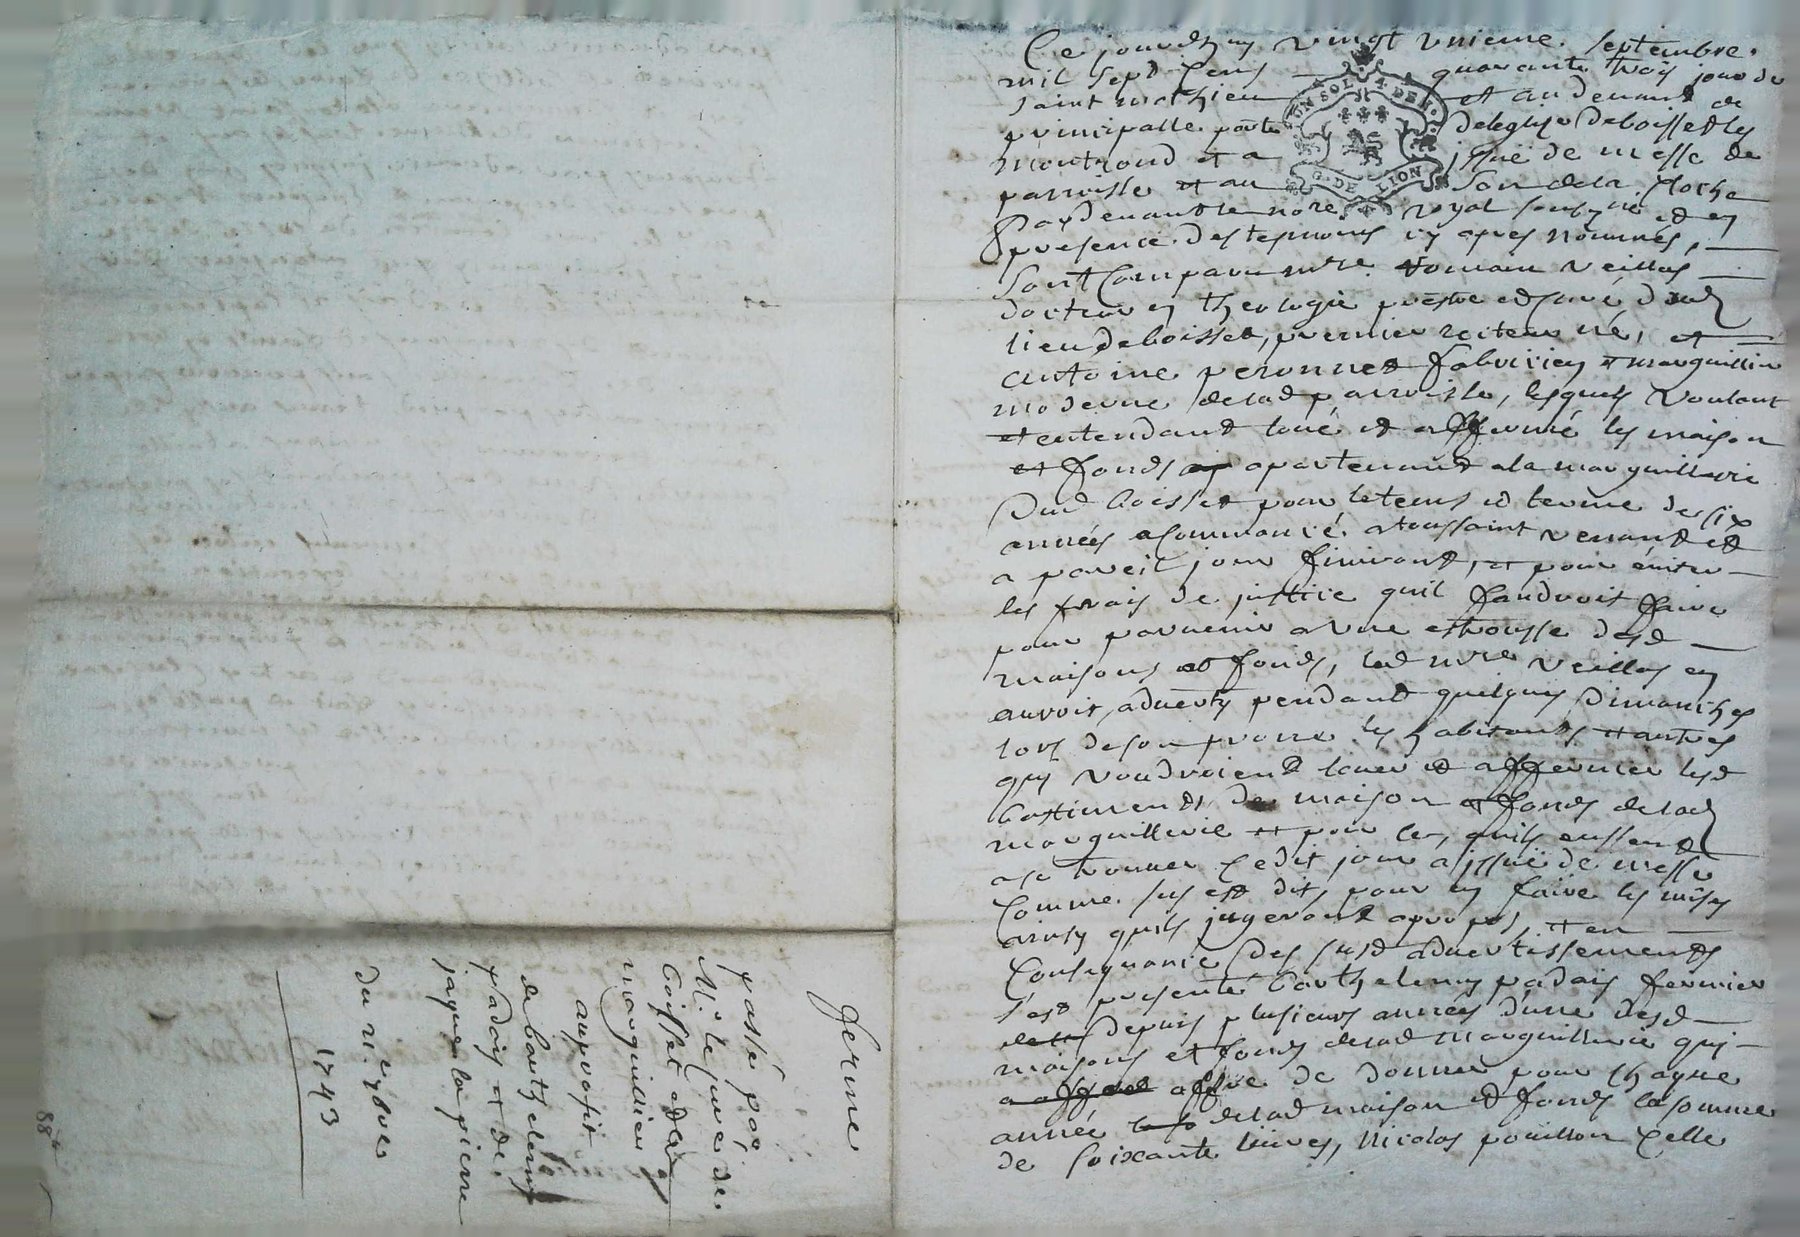 Ce jourdhuy vingt unieme septembre
mil sept cens quarante trois jour de
saint mathieu et audevant de
principalle porte deleglise deboisset les
montrond et a issuë de messe de
parroisse et au son dela cloche
Pardevant le no.re royal soubz.né et en
presence des tesmoins cy apres nommés,
Sont comparu m.re romain veillas
docteur en theologie prestre et curé dud
lieu deboisset, premier recteur né, et
antoine peronnet fabricien et marguillier
moderne delad parroisse, lesquels voulant
et entendant loué et affermé les maison
et fonds apartenant ala marguillerie
Dud boisset pour letems et terme de six
années acommancé atoussaint venant et
a pareil jour finissant, et pour eviter
les frais de justice quil faudroit faire
pour parvenir a une estrousse desd
maisons et fonds, led m.re veillas en
auroit adverty pendant quelques dimanches
lors deson prone les habitants et autres
quy voudroient louer et affermer lesd
bastiments de maison et fonds delad
marguillerie et pour ce, quils eussent
ase trouver cedit jour a issuë de messe
comme sus est dit, pour en faire les mises
ainsy quils jugeront apropos, et en
consequance des susd advertissements
s'est presenté barthelemy padais fermier
depuis plusieurs années d'une desd
maisons et fonds delad marguillerie qui
offre de donner pour chaque
année delad maison et fonds lasomme
de soixante livres, nicolas pouillon celle
ferme
passé par
M.r le curé de
boisset et le
marguillier
auproffit
de barthelemy
padais et de
jaques lapierre
du 21.e 7bre
1743
G. DE LION